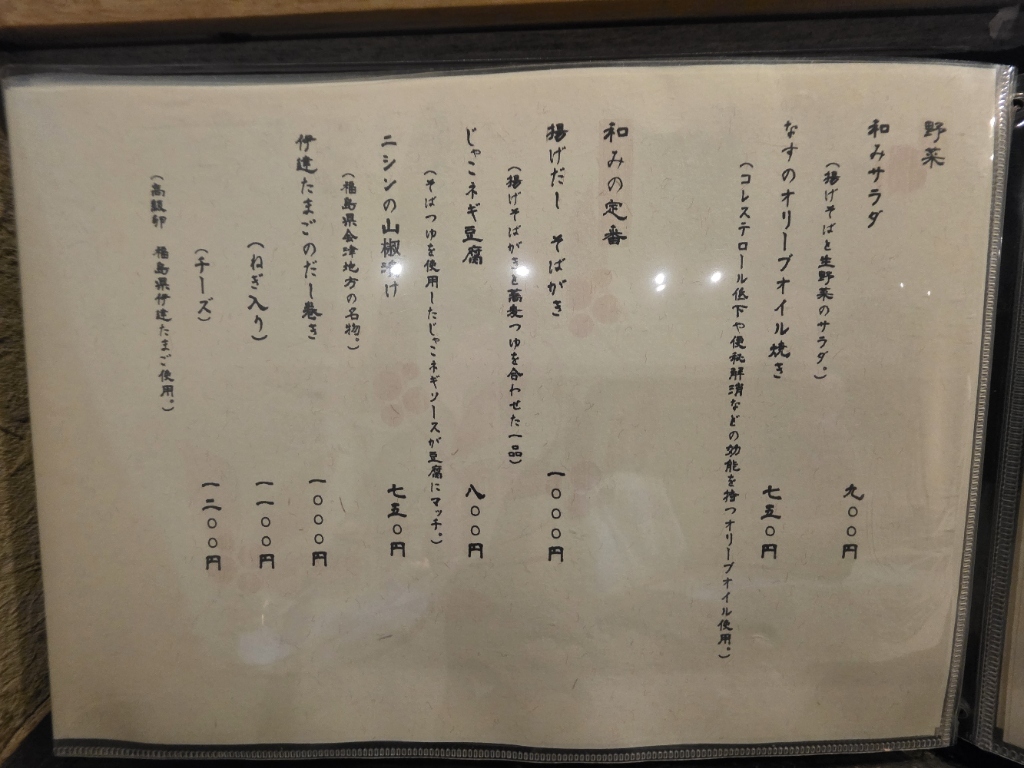 野菜
和みサラダ 九〇〇円
(揚げそばと生野菜のサラダ。)
なすのオリーブオイル焼き 七五〇円
(コレステロール低下や便秘解消などの効能を持つオリーブオイル使用。)
和みの定番
揚げだし そばがき 一〇〇〇円
(揚げそばがきと蕎麦つゆを合わせた一品)
じゃこネギ豆腐 八〇〇円
(そばつゆを使用したじゃこネギソースが豆腐にマッチ。)
ニシンの山椒漬け 七五〇円
(福島県会津地方の名物。)
伊達たまごのだし巻き 一〇〇〇円
(ねぎ入り) 一一〇〇円
(チーズ) 一二〇〇円
(高級卵 福島県伊達たまご使用。)